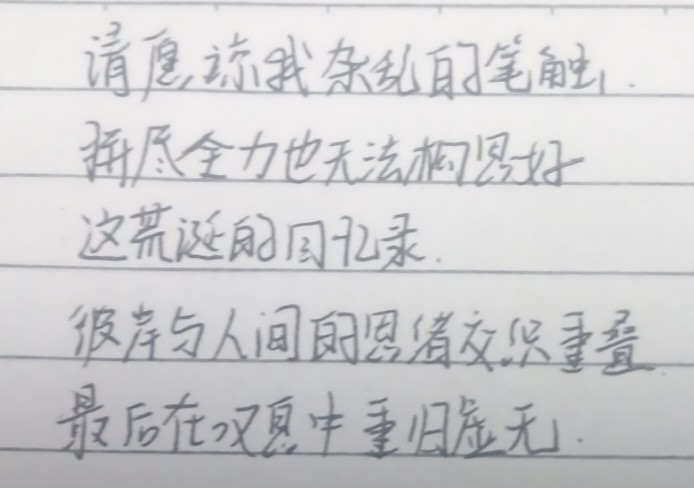 请愿谅我杂乱的笔触.
拼尽全力也无法构思好
这荒诞的回忆录.
彼岸与人间的思绪交织重叠.
最后在叹息中重归虚无.